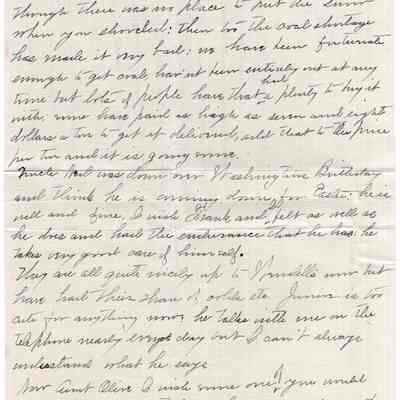 though there was no place to put the snow
when you shoveled; then too the coal shortage
has made it very bad; we have been fortunate
enough to get coal, hav'nt been entirely out at any
time but lots of people have that had plenty to buy it
with, some have paid as high as seven and eight
dollars a ton to get it delivered, add that to the price
per ton and it is going some.
Uncle was down over Washingtons Birthday
and think he is coming down for Easter. he is
well and fine, I wish Frank and I felt as well as
he does and had the endurance that he has; he
takes very good care of himself.
They are all quite nicely up to now but
have had their share of colds etc. Junior is too
cute for anything now, he talks with me on the
telephone nearly every day but I can't always
understand what he says
Now Aunt Olive I wish some one of you would